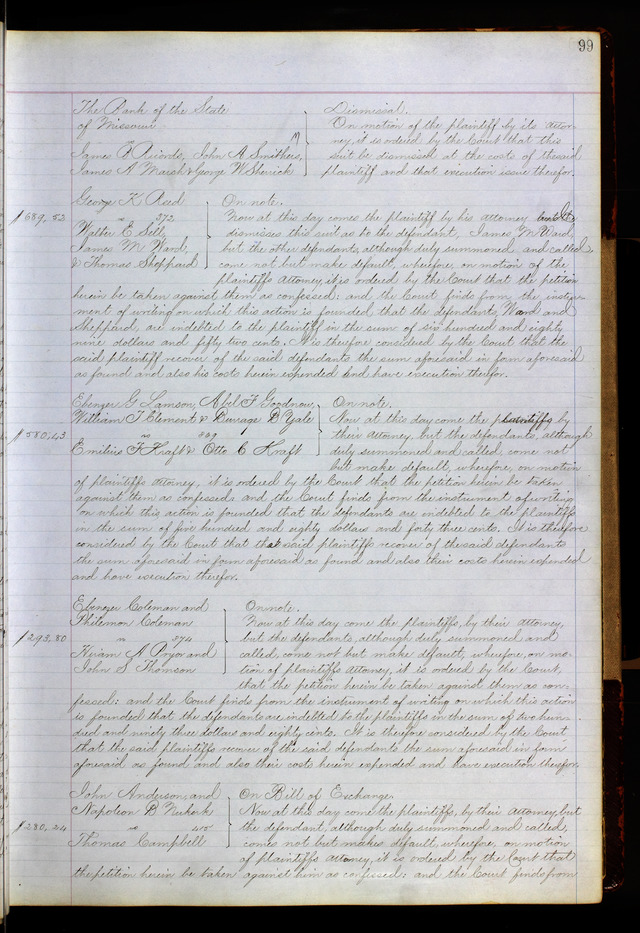 99
The Bank of the State
of Missouri
vs
James R Ricords, John A Smithers,
James A Marsh & George W Sherick
Dismissal.
On motion of the plaintiff by its attor-
ney, it is ordered by the Court that this
suit be dismissed at the costs of the said
plaintiff and that execution issue therefor.
$689,52
George K Reed
vs 372
Walter E Sell,
James M Ward,
& Thomas Sheppard
On note.
Now at this day comes the plaintiff by his attorney
dismisses this suit as to the defendant, James M Ward,
but the other defendants, although duly summoned and called,
come not but make default, wherefore, on motion of the
plaintiffs attorney, it is ordered by the Court that the petition
herein be taken against them as confessed: and the Court finds from the instru-
ment of writing on which this action is founded, that the defendants, Ward and
Sheppard, are indebted to the plaintiff in the sum of six hundred and eighty
nine dollars and fifty two cents. It is therefore considered by the Court that the
said plaintiff recover of the said defendants the sum aforesaid in form aforesaid
as found and also his costs herein expended and have execution therefor.
$580,43
Ebenezer G Samson, Abel F Goodnow,
William T Clement & Durage B Yale
vs
Emilius F Kraft & Otto C Kraft
On note.
Now at this day come the plaintiffs by
their attorney, but the defendants, although
duly summoned and called, come not
but make default, wherefore, on motion
of plaintiffs attorney, it is ordered by the Court that the petition herein be taken
against them as confessed: and the Court finds from the instrument of writing
on which this action is founded that the defendants are indebted to the plaintiffs
in the sum of five hundred and eighty dollars and forty three cents. It is therefore
considered by the Court that the said plaintiffs recover of the said defendants
the sum aforesaid in form aforesaid as found and also their costs herein expended
and have execution therefor.
$293,80
Ebenezer Coleman and
Philemon Coleman
vs 374
Hiram A Pryor and
John S Thomson
On note.
Now at this day come the plaintiffs, by their attorney,
but the defendants, although duly summoned and
called, come not but make default, wherefore, on mo-
tion of plaintiffs attorney, it is ordered by the Court,
that the petition herein be taken against them as con-
fessed: and the Court finds from the instrument of writing on which this action
is founded that the defendants are indebted to the plaintiffs in the sum of two hun-
dred and ninety three dollars and eighty cents. It is therefore considered by the Court
that the said plaintiffs recover of the said defendants the sum aforesaid in form
aforesaid as found and also their costs herein expended and have execution therefor.
$280,24
John Anderson, and
Napoleon B
vs
Thomas Campbell
On Bill of Exchange.
Now at this day come the plaintiffs, by their attorney, but
the defendant, although duly summoned and called,
comes not but makes default, wherefore, on motion
of plaintiffs attorney, it is ordered by the Court that
the petition herein be taken against him as confessed: and the Court finds from